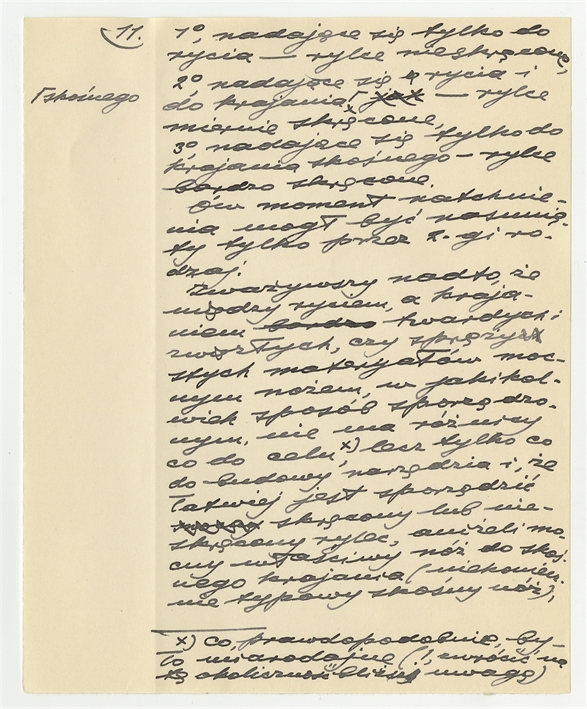 11.
1º, nadające się tylko do
rycia — rylce nieskręcone,
2º nadające się i rycia i
do krajania — rylce
⌈skośnego
miernie skręcone,
3º nadające się tylko do
krajania skośnego — rylce
bardzo skręcone.
Ów moment natchnie-
nia mógł być nasunię-
ty tylko przez 2-gi ro-
dzaj.
Zważywszy nadto, że
między ryciem, a kraja-
niem bardzo twardych i
zwięzłych, czy spręży
stych materyałów moc-
nym nożem, w jakikol-
wiek sposób sporządzo-
nym, nie ma różnicy
co do celu, x) lecz tylko co
do budowy narzędzia i, że
łatwiej jest sporządzić
skręcony lub nie-
skręcony rylec, aniżeli mo-
cny właściwy nóż do skoś-
nego krajania (niekoniecz-
nie typowy skośny nóż),
x) co, prawdopodobnie, by-
ło miarodajne (!, zwrócić na
tę okoliczność bliższą uwagę)